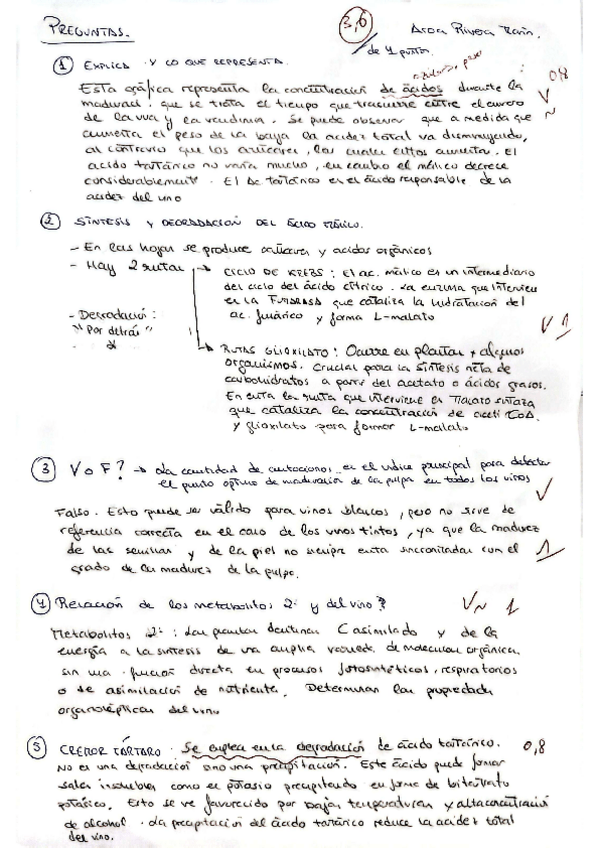 PREGUNTAS.
3,6
de 4 puntos.
① EXPLICA Y LO QUE REPRESENTA.
0,8
Esta gráfica representa la concentración de ácidos durante la
maduraci. que se trata el tiempo que transcurre entre el envero
de la uva y la vendimia. Se puede observar que a medida que
aumenta el peso de la baya la acidez total va disminuyendo,
al contrario que los azúcares, los cuales estos aumenta. El
acido tartárico no varía mucho, en cambio el málico decrece
considerablement. El ac tartárico es el ácido responsable de la
acidez del vino
② SÍNTESIS Y DEGRADACIÓN DEL ÁCIDO
- En las hojas se produce azúcares y acidos orgánicos
- Hay 2 rutas
CICLO DE KREBS: El ac. málico es un intermediario
del ciclo del ácido cítrico. La enzima que interviene
es la FUMARASA que cataliza la hidratación del
ac. fumárico y forma L-malato
- Degradación:
"Por detrás"
V 1
RUTAS GLIOXILATO: Ocurre en plantas y algunos
organismos. Crucial para la síntesis neta de
carbohidratos a partir del acetato o ácidos grasos.
En esta la ruta que interviene es Malato sintasa
que cataliza la concentración de acetil CoA
y glioxilato para formar L-malato
③ V o F? → La cantidad de antocianos es el índice principal para detectar
el punto optimo de maduración de la pulpa en todos los vinos
Falso. Esto puede ser válido para vinos blancos, pero no sirve de
referencia correcta en el caso de los vinos tintos, ya que la madurez
de las semillas y de la piel no siempre están sincronizadas con el
grado de la madurez de la pulpa.
1
④ Relación de los metabolitos 2º y del vino?
V~ 1
Metabolitos 2º: Las plantas destinan C asimilado y de la
energía a la síntesis de una amplia variedad de moleculas orgánicas
sin una función directa en procesos fotosintéticos, respiratorios
o de asimilación de nutrientes. Determinan las propiedades
organolépticas del vino
⑤ CREMOR TÁRTARO. Se emplea en la degradación de ácido tartárico.
0,8
No es una degradación sino una precipitación. Este ácido puede formar
sales insolubles como el potasio precipitando en forma de bitartrato
potásico. Esto se ve favorecido por bajas temperaturas y alta concentración
de alcohol. La precipitación del ácido tartárico reduce la acidez total
del vino.